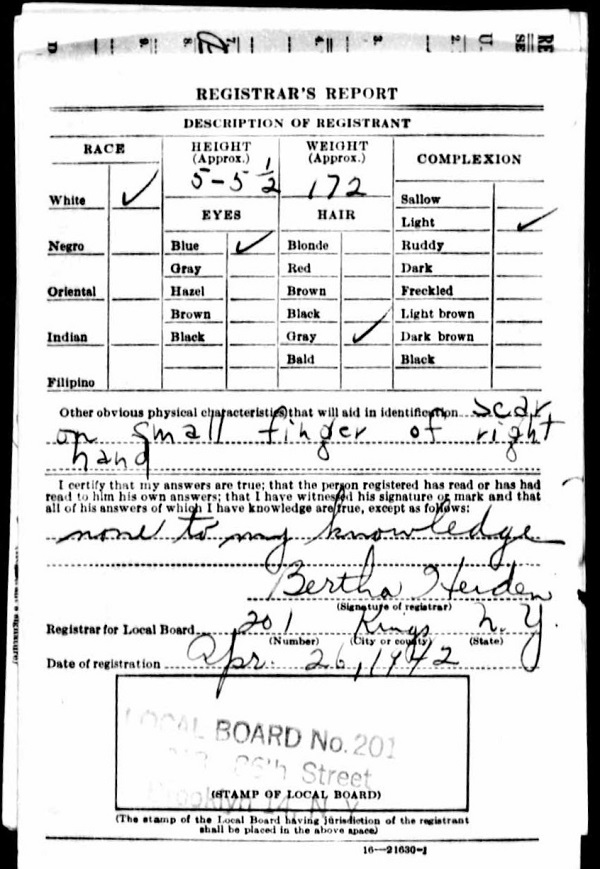 REGISTRAR'S REPORT
DESCRIPTION OF REGISTRANT
RACE
HEIGHT (Approx.)
WEIGHT (Approx.)
COMPLEXION
5-5 1/2
172
White ✓
Sallow
EYES
HAIR
Light ✓
Negro
Blue ✓
Blonde
Ruddy
Gray
Red
Dark
Oriental
Hazel
Brown
Freckled
Brown
Black
Light brown
Indian
Black
Gray ✓
Dark brown
Bald
Black
Filipino
Other obvious physical characteristics that will aid in identification scar
on small finger of right
hand
I certify that my answers are true; that the person registered has read or has had
read to him his own answers; that I have witnessed his signature or mark and that
all of his answers of which I have knowledge are true, except as follows:
none to my knowledge
Bertha Heiden
(Signature of registrar)
Registrar for Local Board 201 Kings N.Y.
(Number) (City or county) (State)
Date of registration Apr. 26, 1942
LOCAL BOARD No. 201
86th Street
(STAMP OF LOCAL BOARD)
Brooklyn 14, N.Y.
(The stamp of the Local Board having jurisdiction of the registrant
shall be placed in the above space)
16—21630-1